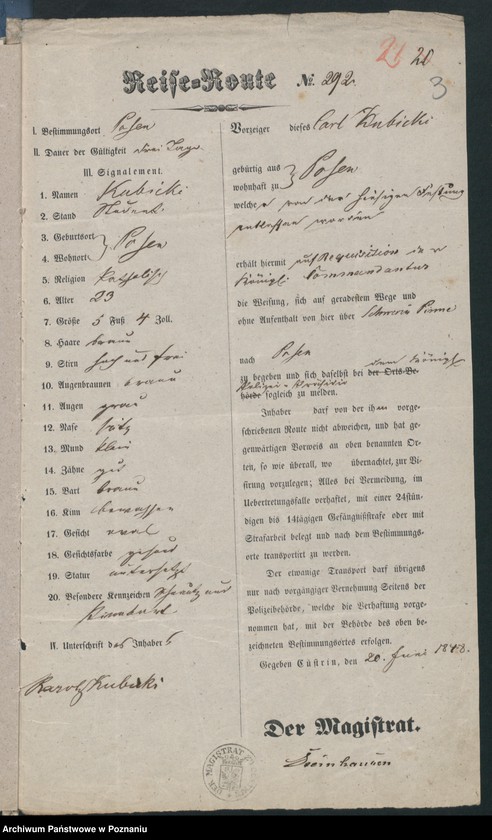 21 20
3
Reise-Route № 292.
I. Bestimmungsort Posen
II. Dauer der Gültigkeit drei Tage
III. Signalement.
1. Namen Kubicki
2. Stand Student
3. Geburtsort } Posen
4. Wohnort
5. Religion katholisch
6. Alter 23
7. Größe 5 Fuß 4 Zoll.
8. Haare braun
9. Stirn hoch und frei
10. Augenbraunen braun
11. Augen grau
12. Nase spitz
13. Mund klein
14. Zähne gut
15. Bart braun
16. Kinn bewachsen
17. Gesicht oval
18. Gesichtsfarbe gesund
19. Statur untersetzt
20. Besondere Kennzeichen Schnautz und
Kinnbart
IV. Unterschrift des Inhabers
Karol Kubicki
Vorzeiger dieses Carl Kubicki
gebürtig aus } Posen
wohnhaft zu
welcher von der hiesigen Festung
entlassen worden
erhält hiermit auf Requisition der
Königl. Commandantur
die Weisung, sich auf geradestem Wege und
ohne Aufenthalt von hier über Schwerin Pinne
nach Posen
zu begeben und sich daselbst bei der Orts-Be- dem Königl.
hörde Polizei-Präsidio sogleich zu melden.
Inhaber darf von der ihm vorge-
schriebenen Route nicht abweichen, und hat ge-
genwärtigen Vorweis an oben benannten Or-
ten, so wie überall, wo übernachtet, zur Vi-
sirung vorzulegen; Alles bei Vermeidung, im
Uebertretungsfalle verhaftet, mit einer 24stün-
digen bis 14tägigen Gefängnißstrafe oder mit
Strafarbeit belegt und nach dem Bestimmungs-
orte transportirt zu werden.
Der etwanige Transport darf übrigens
nur nach vorgängiger Vernehmung Seitens der
Polizeibehörde, welche die Verhaftung vorge-
nommen hat, mit der Behörde des oben be-
zeichneten Bestimmungsortes erfolgen.
Gegeben Cüstrin, den 20. Juni 1848.
Der Magistrat.
MAGISTRAT
Archiwum Państwowe w Poznaniu